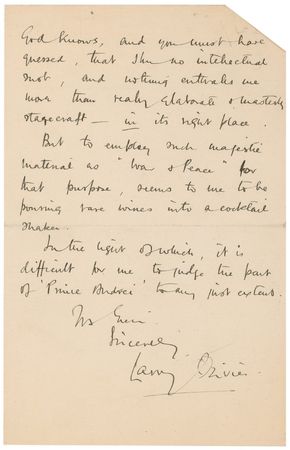 God knows, and you must have
guessed, that I'm no intellectual
snob, and nothing enthrals me
more than really elaborate & masterly
stagecraft – in its right place.
But to employ such majestic
material as "War & Peace" for
that purpose, seems to me to be
pouring rare wines into a cocktail
shaker.
In the light of which, it is
difficult for me to judge the part
of 'Prince Andrei' to any just extent.
Sincerely,
Larry Olivier.